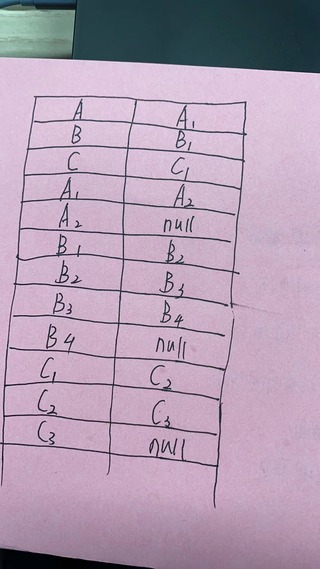 A A₁
B B₁
C C₁
A₁ A₂
A₂ null
B₁ B₂
B₂ B₃
B₃ B₄
B₄ null
C₁ C₂
C₂ C₃
C₃ null